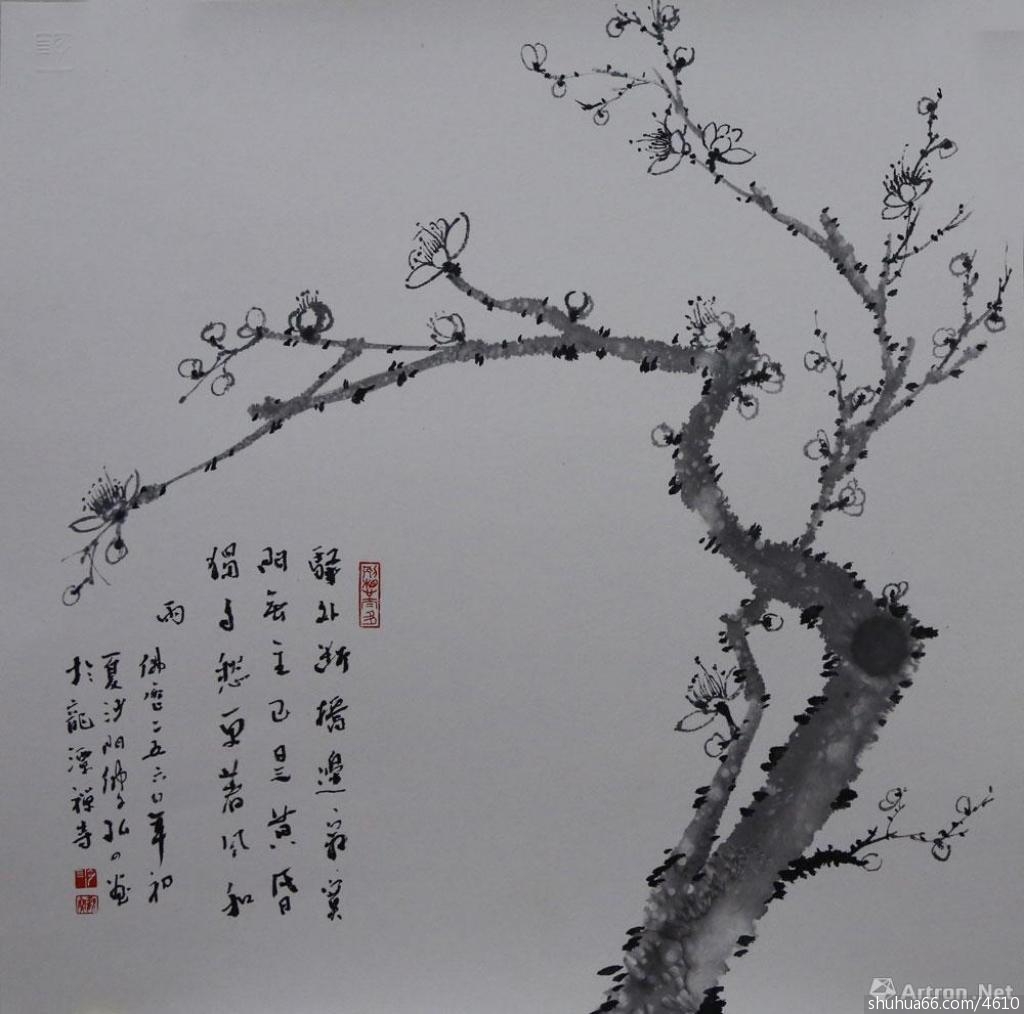 驛外斷橋邊寂寞
開無主已是黃昏
獨自愁更著風和
雨
佛曆二五六〇年初
夏沙門佛子弘畫
於龍潭禪寺
Artron.Net
shuhua66.com/4610